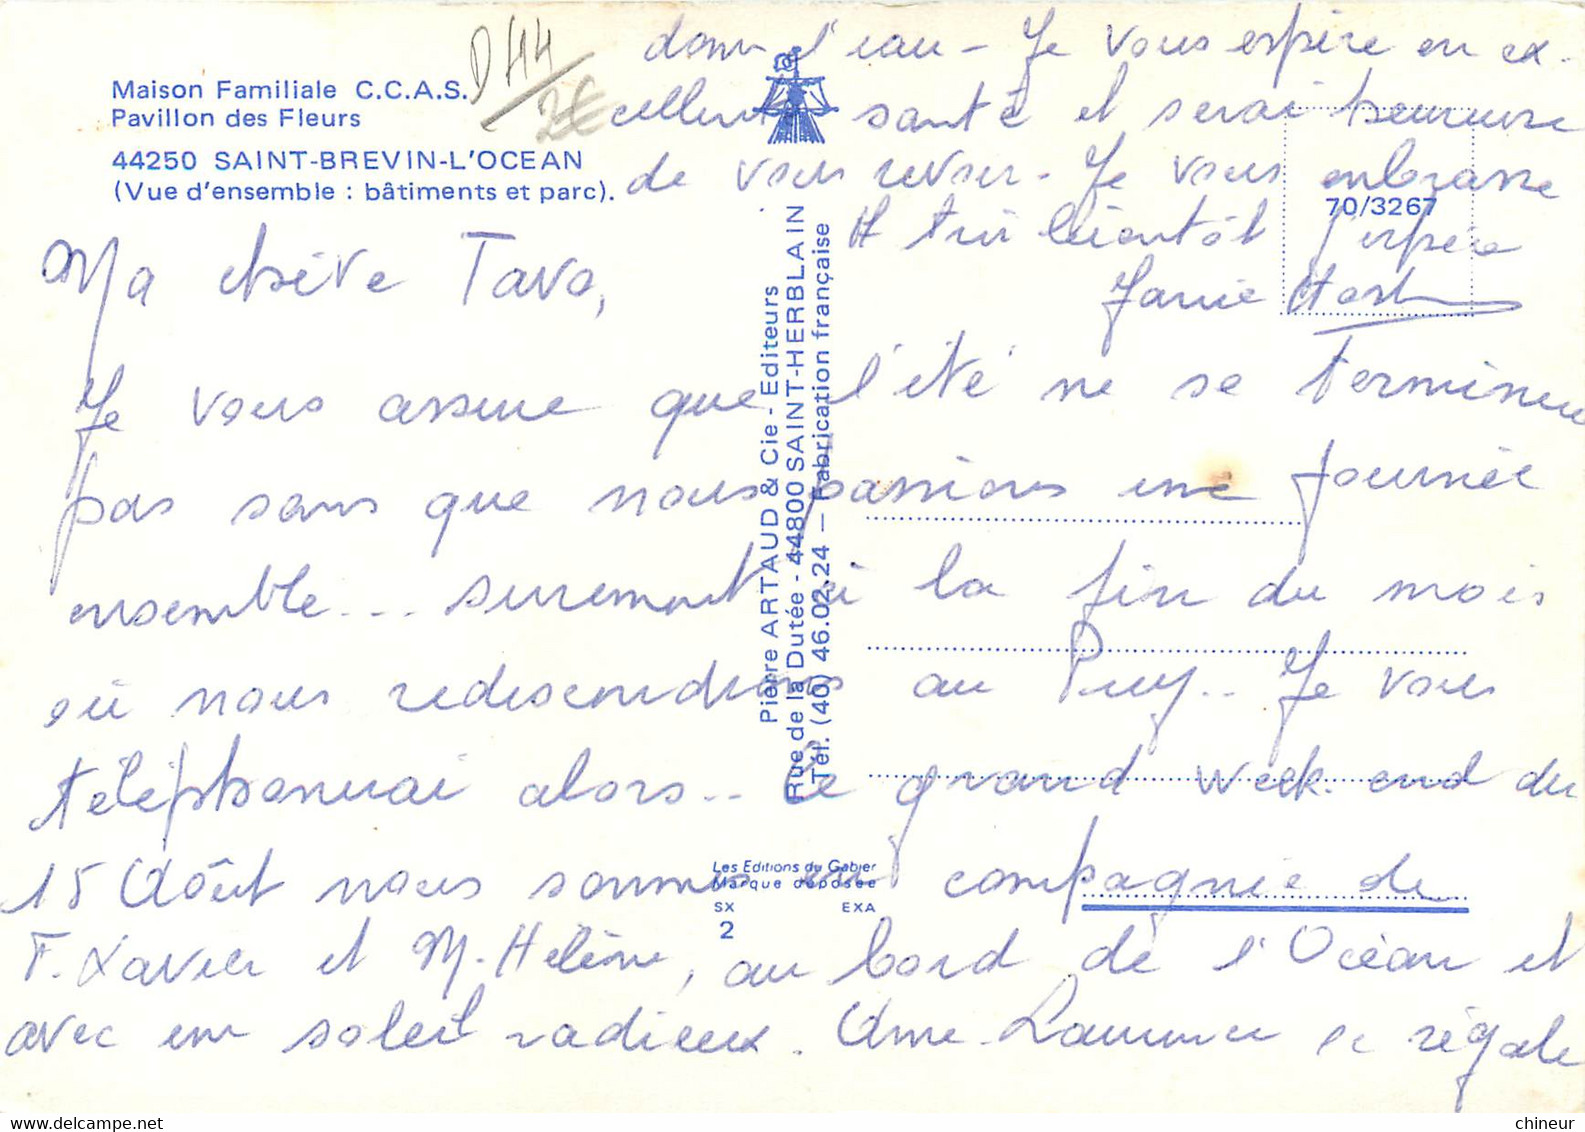 Maison Familiale C.C.A.S.
Pavillon des Fleurs
44250 SAINT-BREVIN-L'OCEAN
(Vue d'ensemble : bâtiments et parc).
D44
2€
70/3267
Ma chère Tava,
Je vous assure que l'été ne se terminera
pas sans que nous passions une journée
ensemble... surement à la fin du mois
où nous redescendrons au Puy.. Je vous
téléphonerai alors... Ce grand week-end du
15 Août nous sommes en compagnie de
F. Xavier et M. Hélène, au bord de l'Océan et
avec un soleil radieux. Anne-Laurence se régale
dans l'eau - Je vous espère en ex-
cellente santé et serai heureuse
de vous revoir - Je vous embrasse
A très bientôt j'espère
Janie
Pierre ARTAUD & Cie - Editeurs
Rue de la Dutée - 44800 SAINT-HERBLAIN
Tél. (40) 46.02.24 — Fabrication française
Les Editions du Gabier
Marque déposée
SX EXA
2
chineur